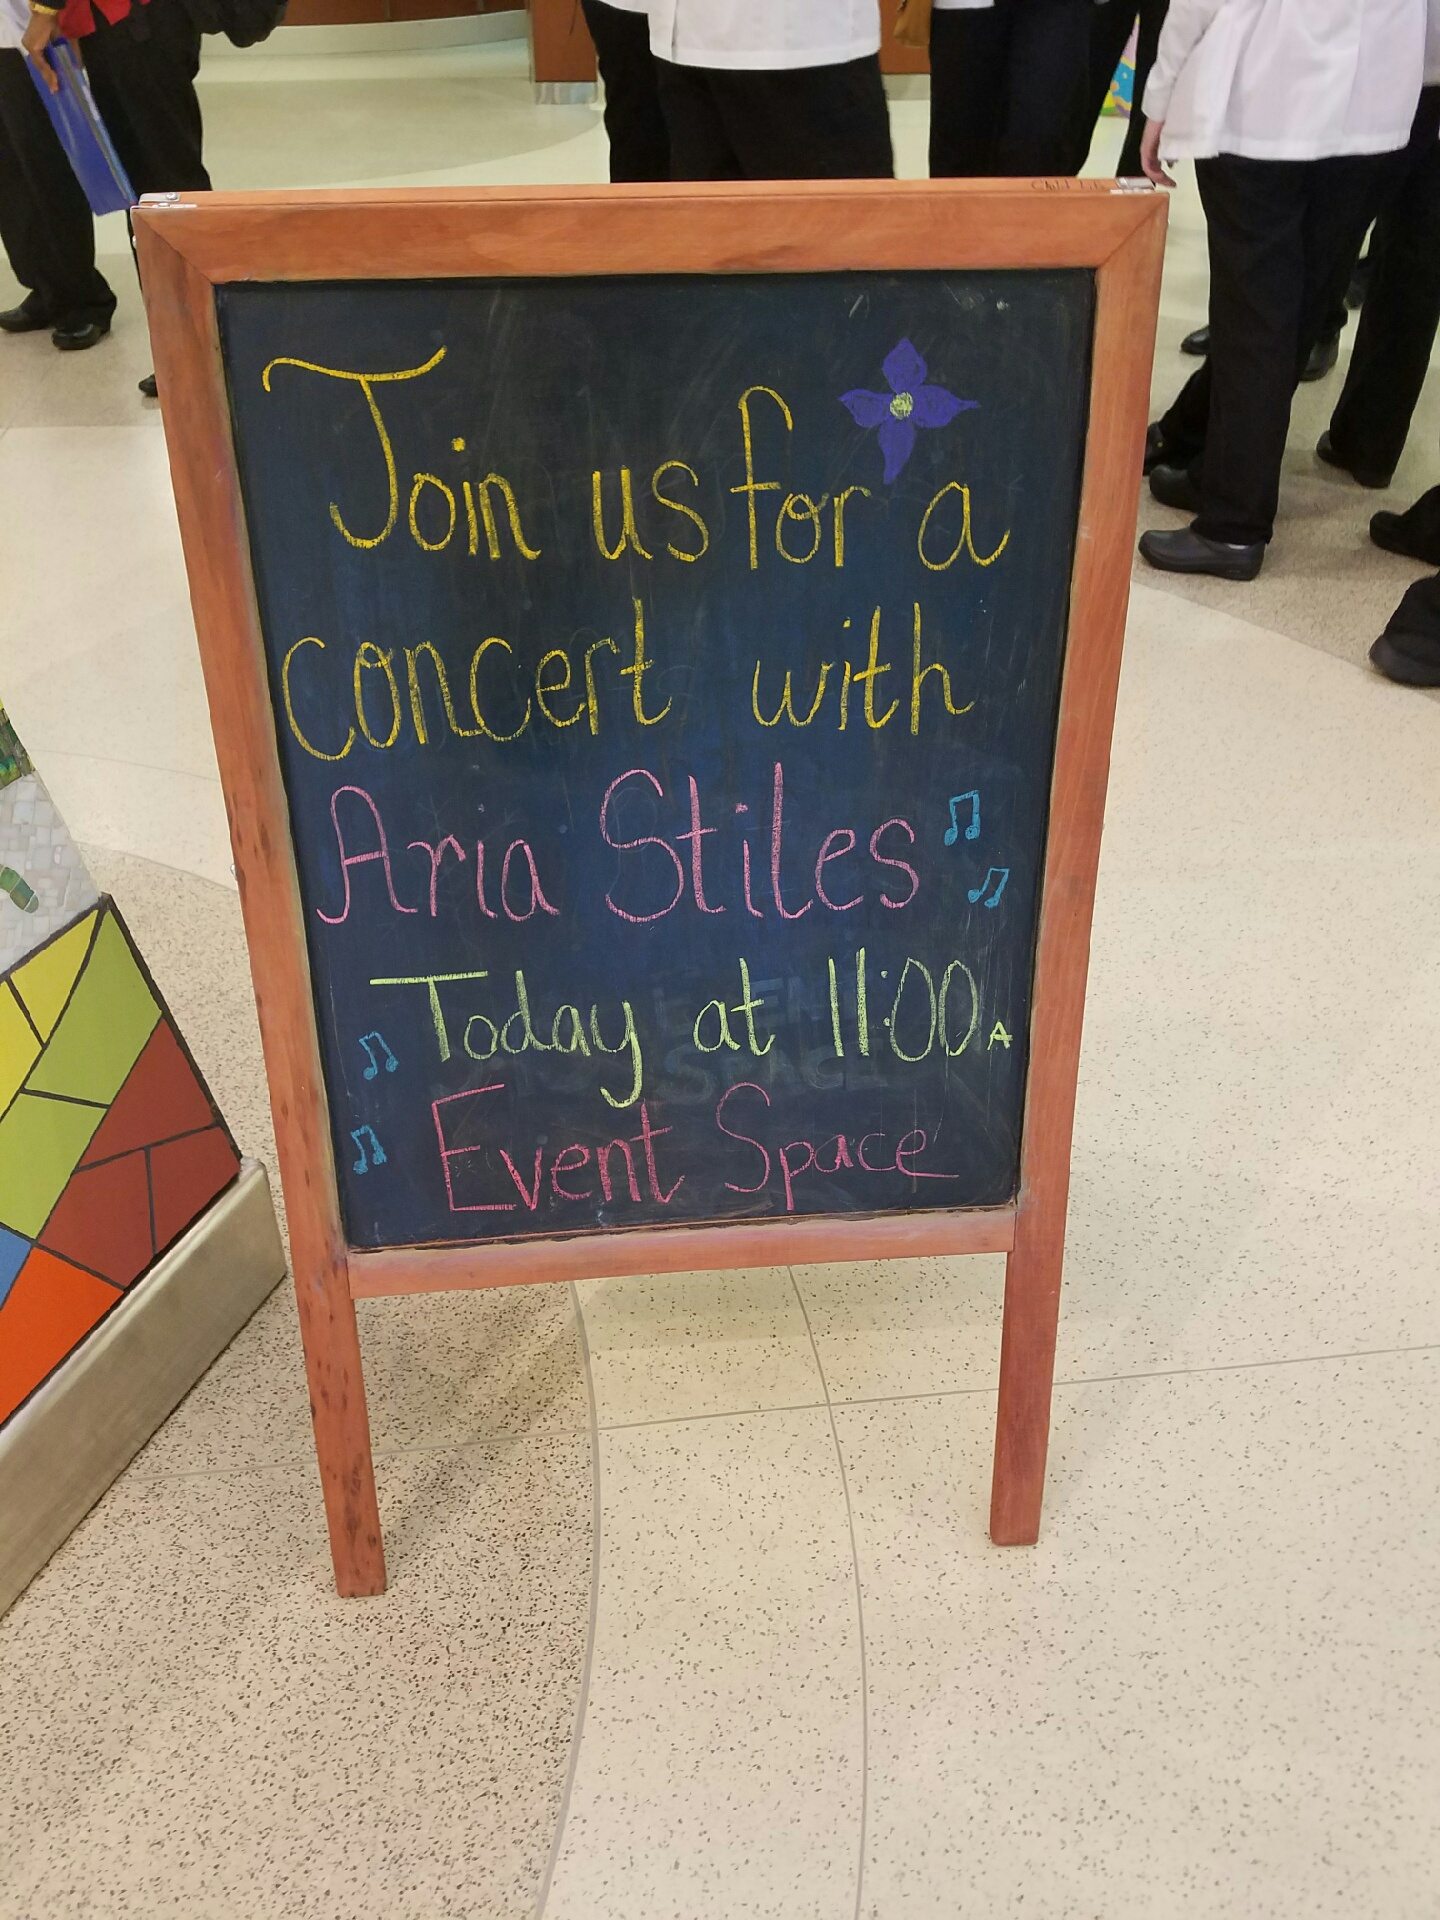 Child Life
Join us for a
concert with
Aria Stiles
Today at 11:00A
Event Space